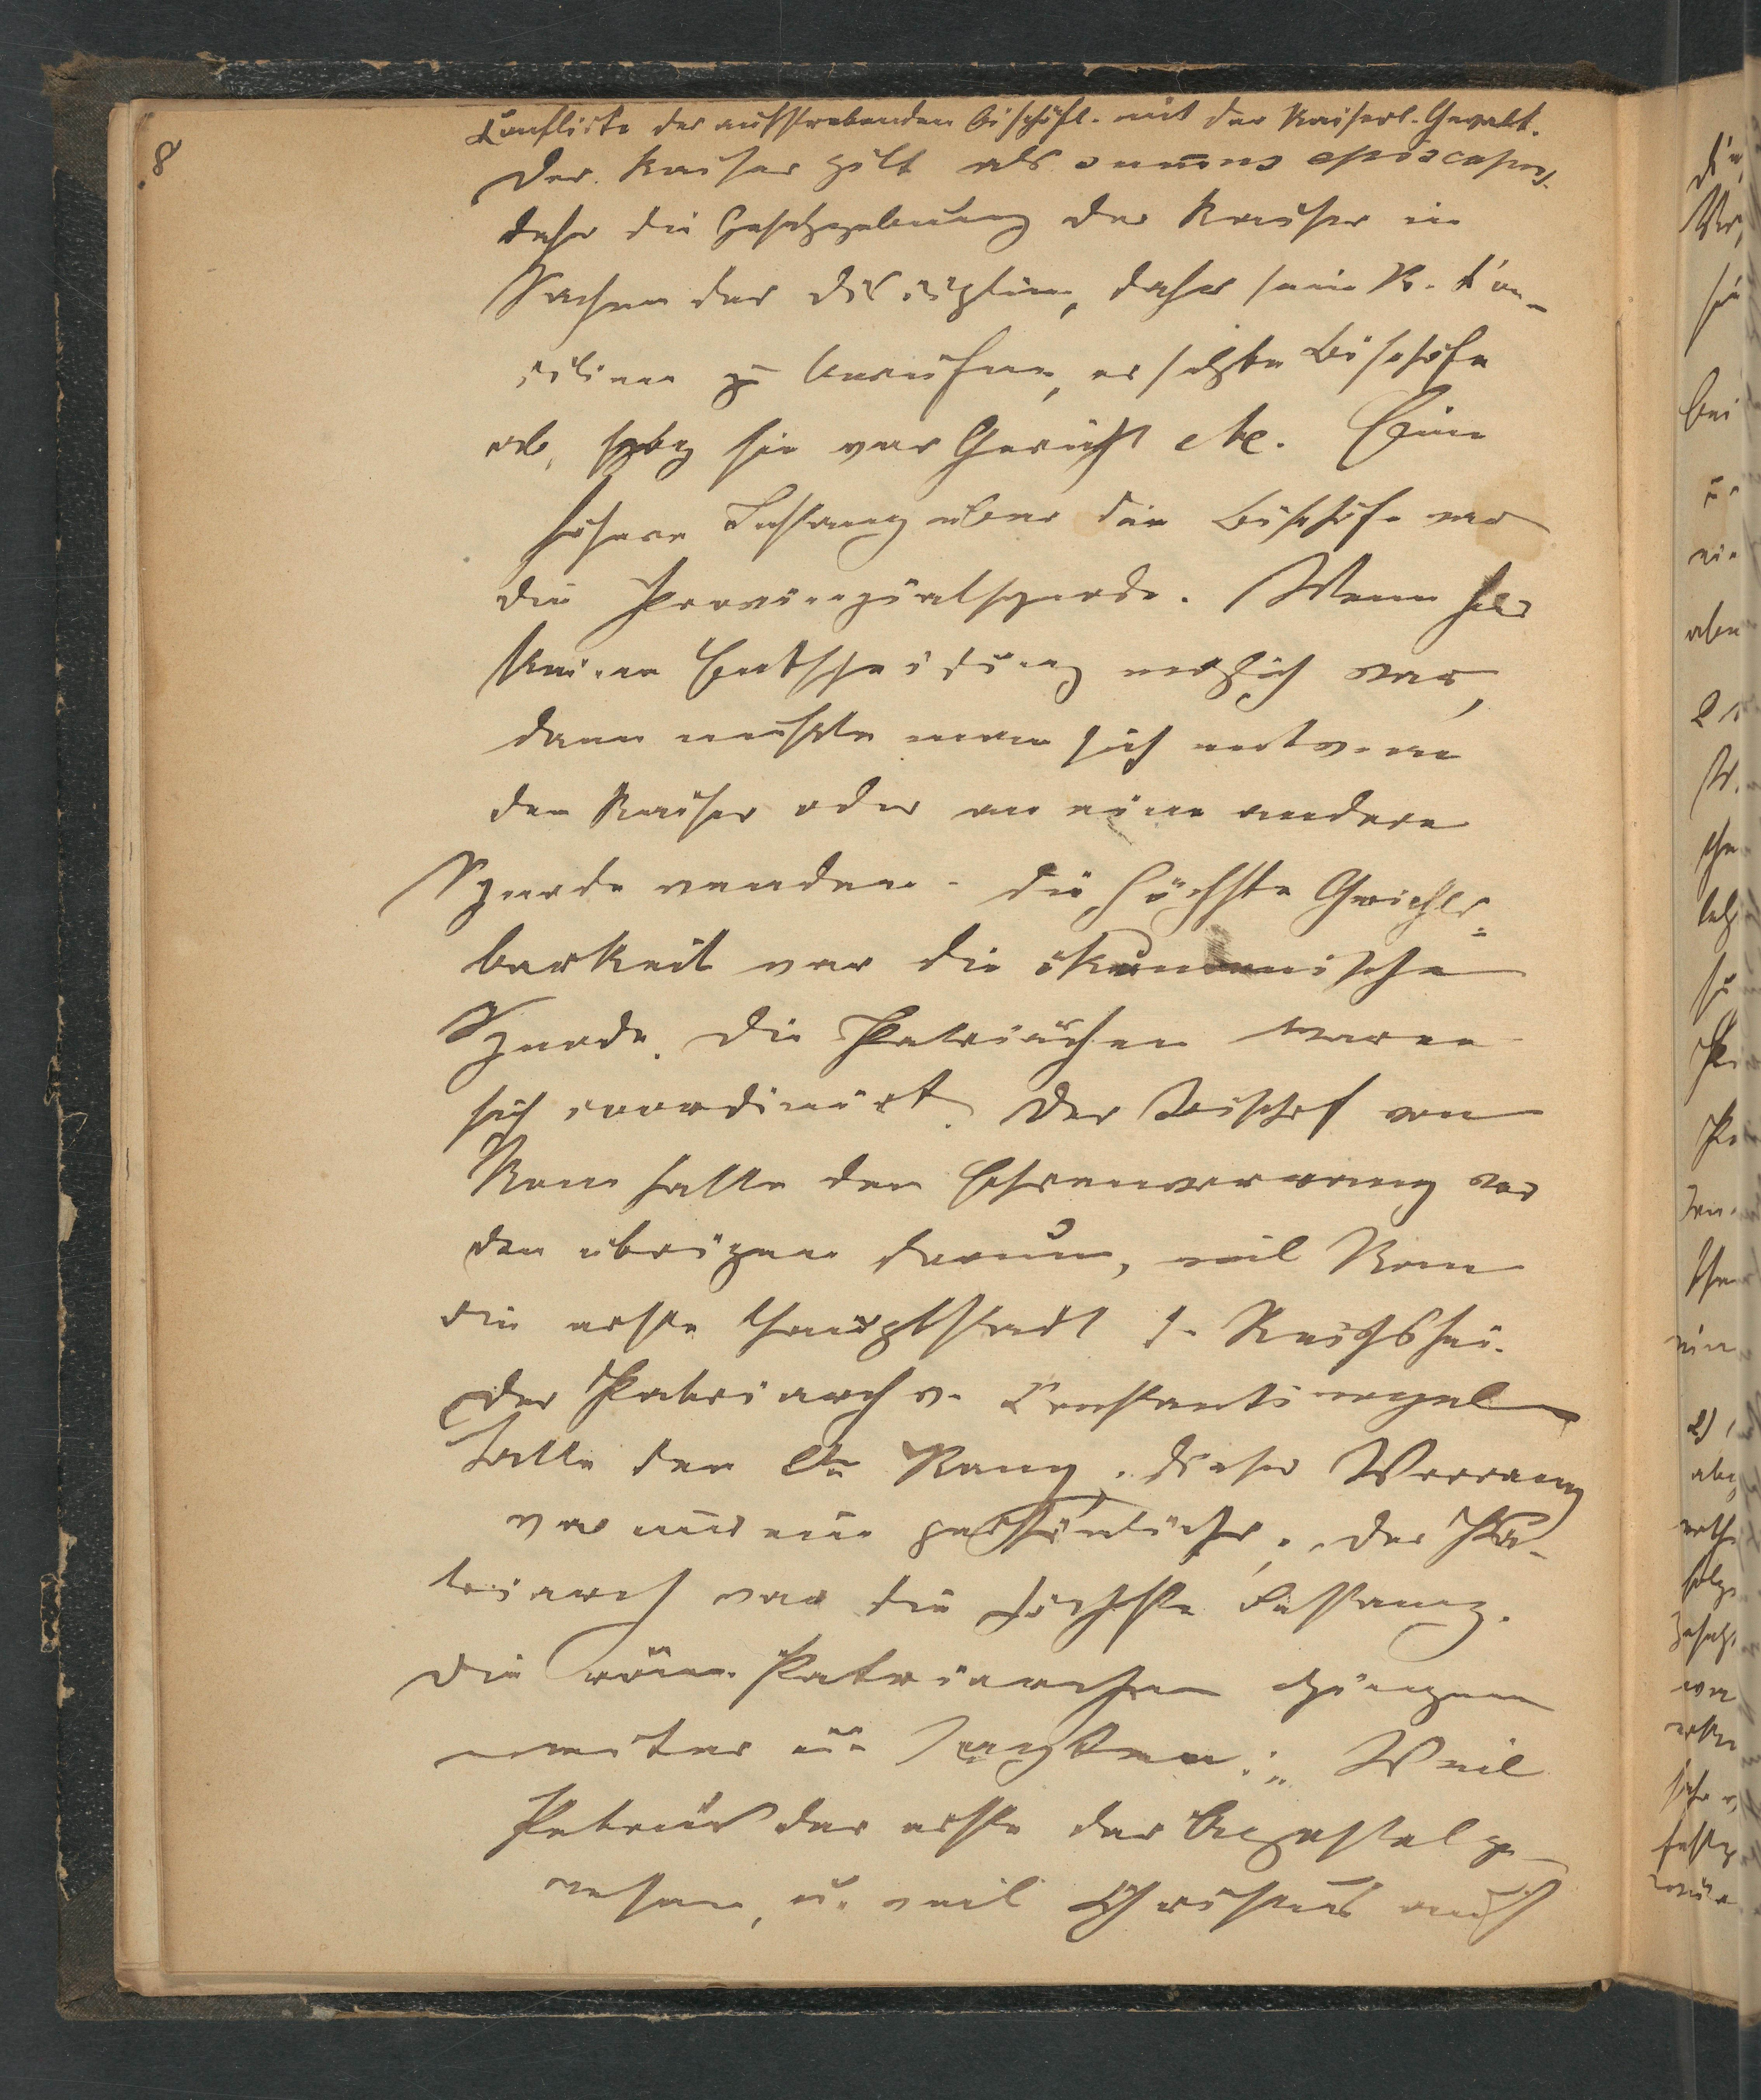 8
Conflicte der aufstrebenden bischöfl. mit der Kaiserl. Gewalt.
Der Kaiser gilt als summus episcopus.
daher die Gesetzgebung der Kaiser in
Sachen der Disciplin, daher sein R. Con-
cilien zu berufen, er setzte Bischöfe
ab, sie vor Gericht etc. Eine
höhere Instanz über die Bischöfe war
die Provinzialsynode. Wenn hier
keine Entscheidung möglich war,
dann mußte man sich entw. an
den Kaiser oder an eine andere
Synode wenden. Die höchste Gerichts-
barkeit war die ökumenische
Synode. Die Patriarchen waren
sich coordinirt. Der Bischof von
Rom hatte den Ehrenvorrang vor
den übrigen darum, weil Rom
die erste Hauptstadt d. Reichs sei.
Der Patriarch v. Constantinopel
hatte den 2ten Rang. Dieser Vorrang
war nur ein persönlicher. Der Pa-
triarch war die höchste Instanz.
Die röm. Patriarchen gingen
weiter u. sagten: „Weil
Petrus der erste der Apostel ge-
wesen, u. weil Christus auch